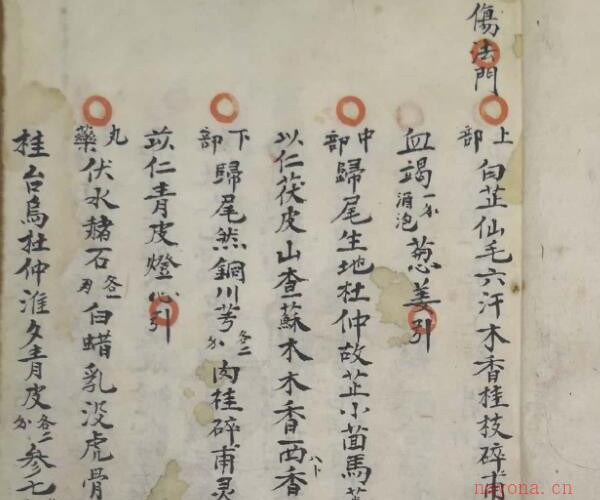 傷法門
上部 白芷仙毛六汗木香桂枝碎甫
血竭一分酒泡葱姜引
中部 歸尾生地杜仲故芷小茴馬
苡仁茯皮山查蘇木木香西香
下部 歸尾然銅川芎各二分肉桂碎甫灵
苡仁青皮燈心引
丸藥 伏水赭石各一白蜡乳没虎骨
桂台烏杜仲淮夕青皮各二分参七
nayona.cn